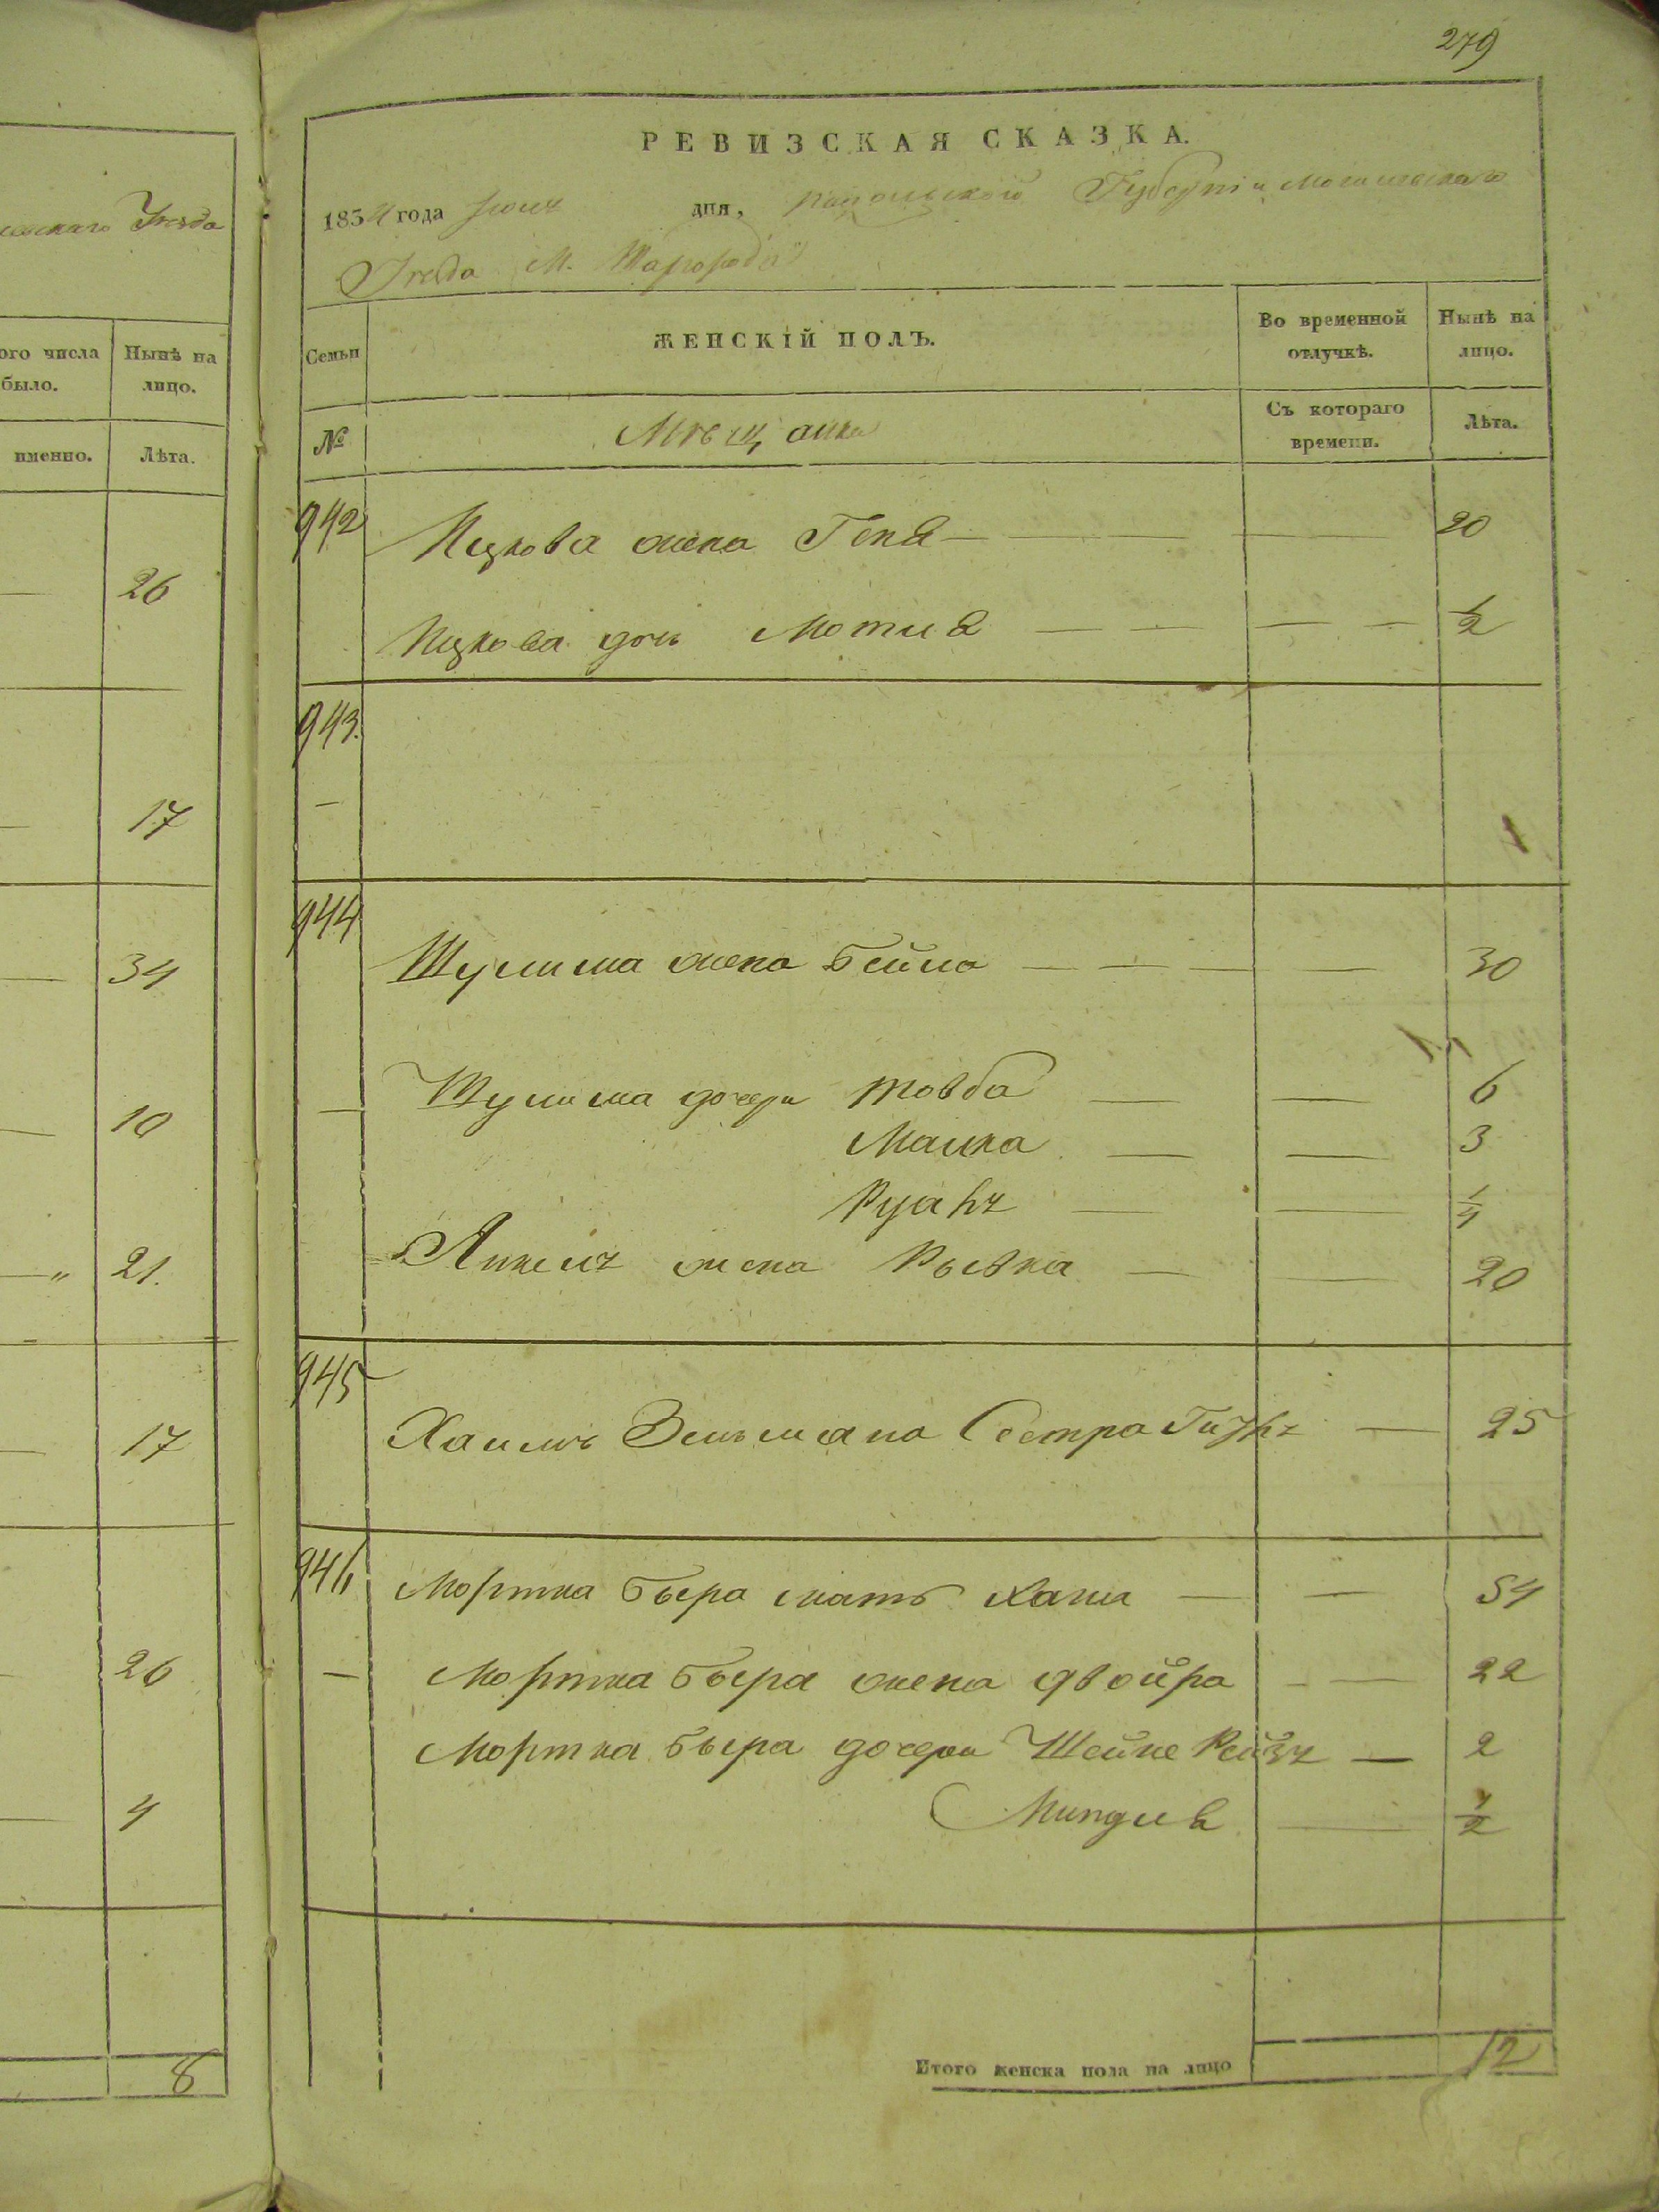 279
РЕВИЗСКАЯ СКАЗКА.
1834 года дня, Подольской Губерніи Могилевскаго
Уезда М. Шаргородъ
Семьи
ЖЕНСКІЙ ПОЛЪ.
Во временной отлучкѣ.
Нынѣ на лицо.
№
Мѣщанка
Съ котораго времени.
Лѣта.
942 Ицкова жена Геня 20
Ицкова дочь Мотля 1/2
943.
944
Шулима жена Бейла 30
Шулима дочери Товба 6
Малка 3
1/4
Янкеля жена Рывка 20
945
Хаимъ Зельмана Сестра 25
946 Мортка Бера мать Хана 54
Мортка Бера жена Двойра 22
Мортка Бера дочери Шейне Рейзя 2
Миндля 1/2
Итого женска пола на лицо 12
Уезда
ого числа было.
Нынѣ на лицо.
именно.
Лѣта.
26
17
34
10
21.
17
26
4
8